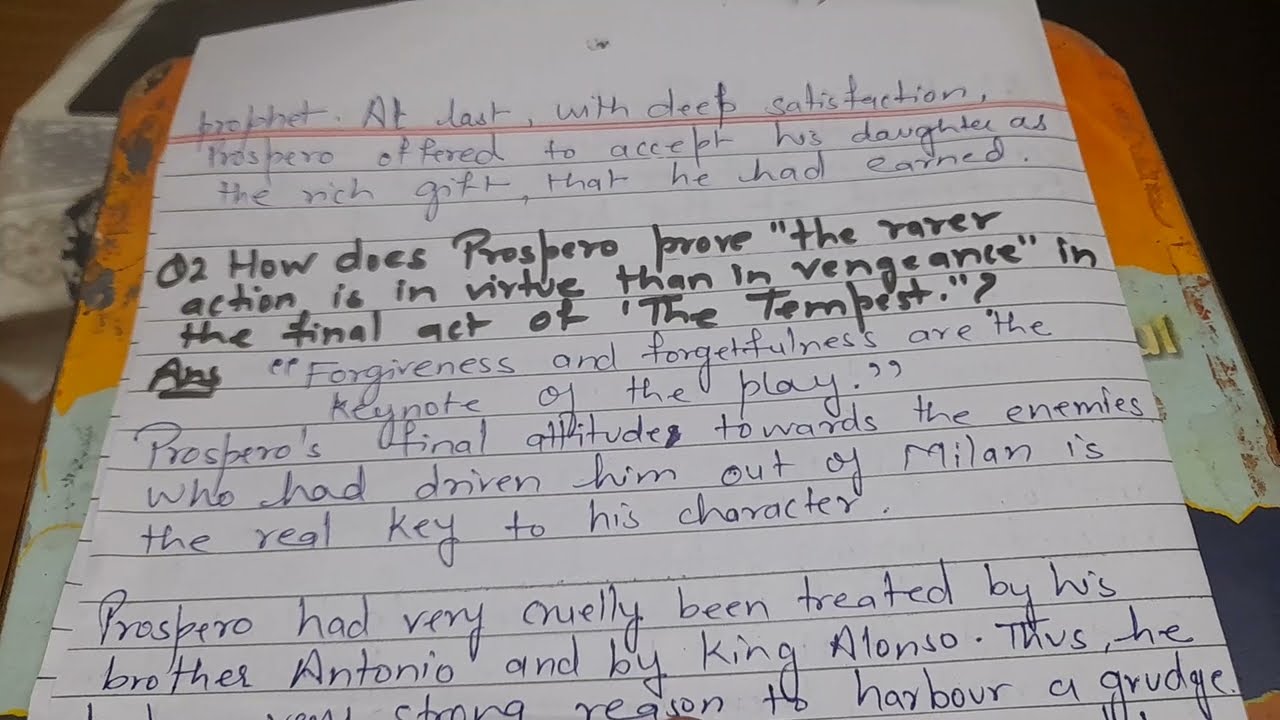 prophet. At last, with deep satisfaction,
Prospero offered to accept his daughter as
the rich gift, that he had earned.
Q2 How does Prospero prove "the rarer
action is in virtue than in vengeance" in
the final act of 'The Tempest."?
Ans "Forgiveness and forgetfulness are the
keynote of the play."
Prospero's final attitudes towards the enemies
who had driven him out of Milan is
the real key to his character.
Prospero had very cruelly been treated by his
brother Antonio and by King Alonso. Thus, he
very strong reason to harbour a grudge.